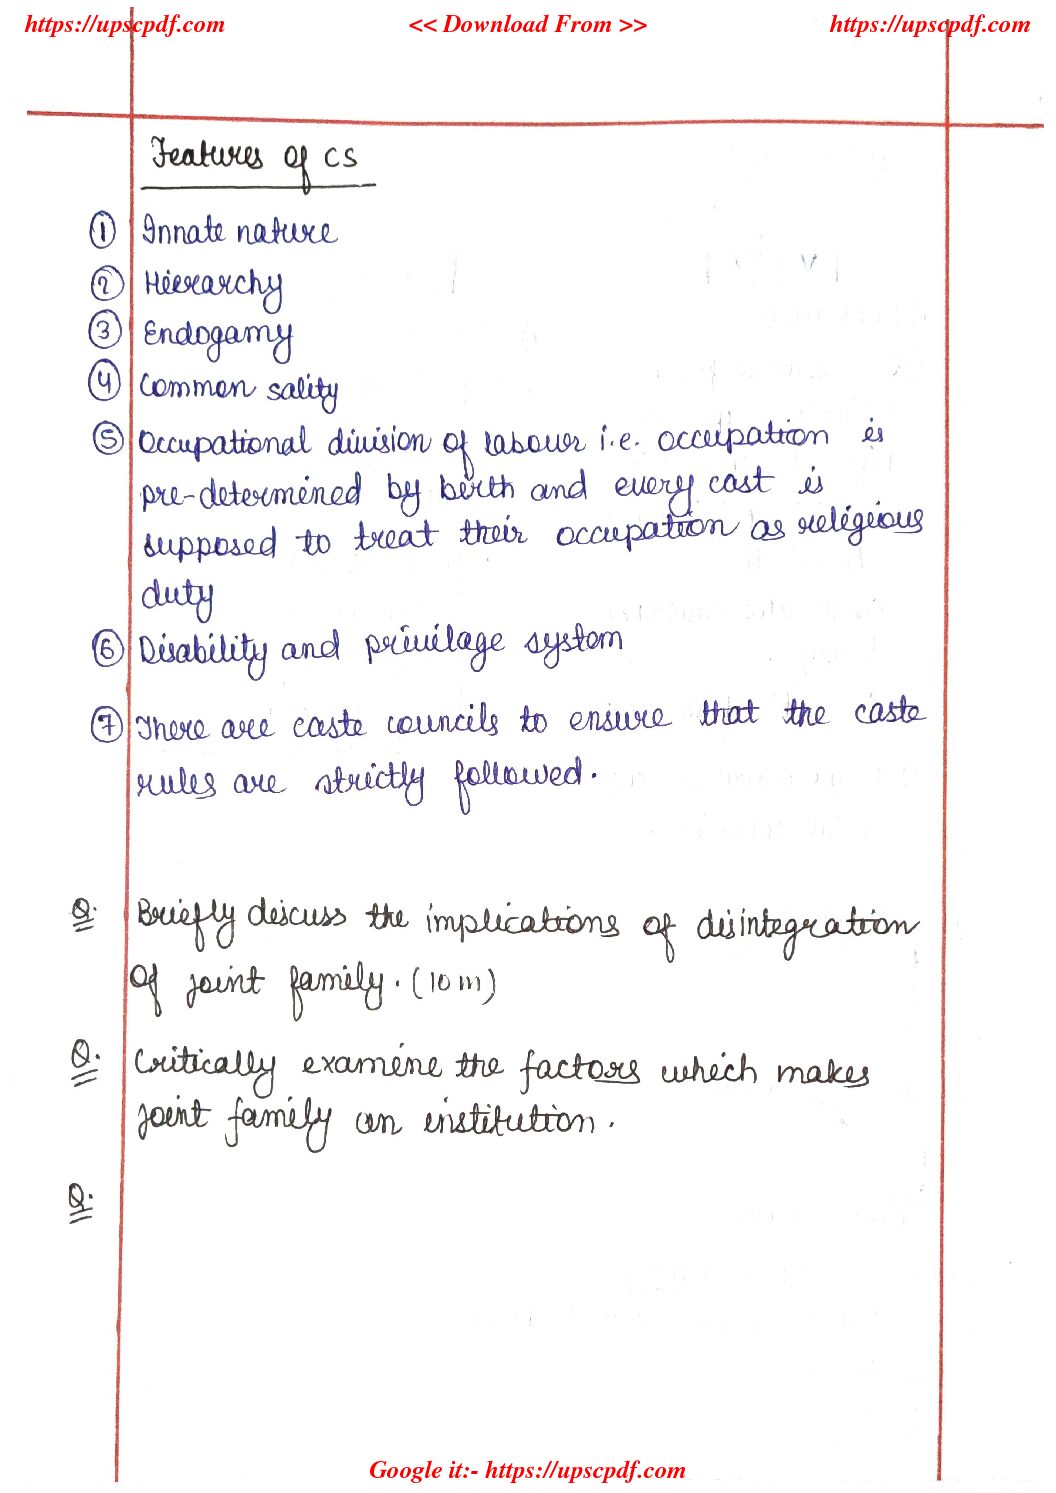 https://upscpdf.com << Download From >> https://upscpdf.com
Features of CS
① Innate nature
② Hierarchy
③ Endogamy
④ Common sality
⑤ Occupational division of labour i.e. occupation is
pre-determined by birth and every cast is
supposed to treat their occupation as religious
duty
⑥ Disability and privilage system
⑦ There are caste councils to ensure that the caste
rules are strictly followed.
Q. Briefly discuss the implications of disintegration
of joint family. (10 m)
Q. Critically examine the factors which makes
joint family an institution.
Q.
Google it:- https://upscpdf.com